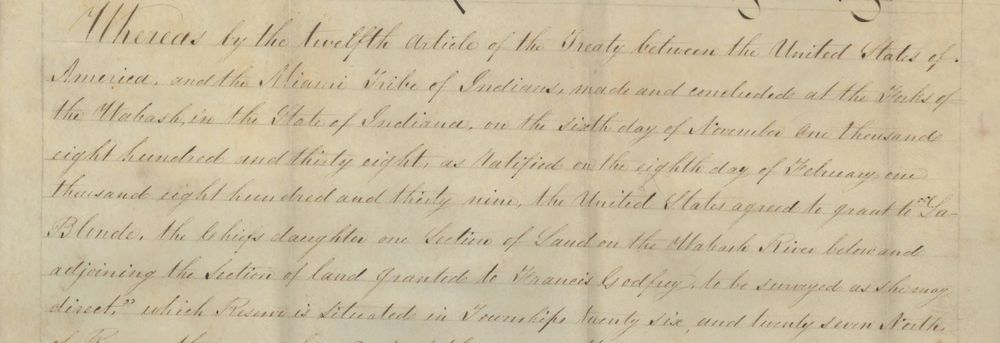 Whereas by the twelfth Article of the Treaty between the United States of
America, and the Miami Tribe of Indians, made and concluded at the Forks of
the Wabash, in the State of Indiana, on the sixth day of November one thousand
eight hundred and thirty eight, as ratified on the eighth day of February one
thousand eight hundred and thirty nine, the United States agreed to grant to "La-
Blonde, the Chiefs daughter one Section of Land on the Wabash River below and
adjoining the Section of land granted to Francis Godfroy, to be surveyed as she may
direct," which Reserve is situated in Townships twenty six, and twenty seven North,